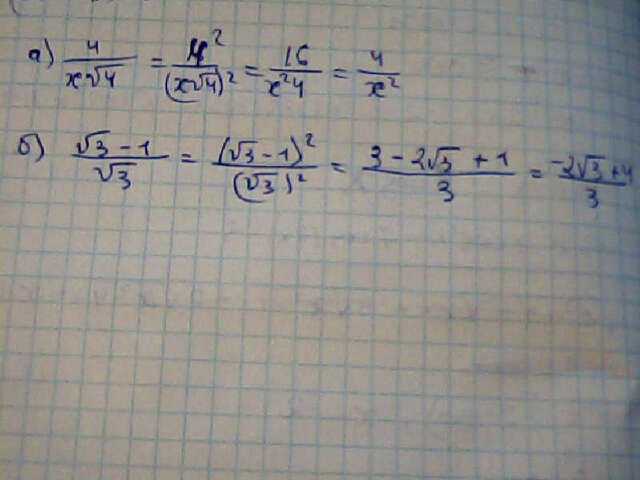 а) 4/(x√4) = 4²/(x√4)² = 16/(x²4) = 4/x²
б) (√3 - 1)/√3 = (√3 - 1)²/(√3)² = (3 - 2√3 + 1)/3 = (-2√3 + 4)/3